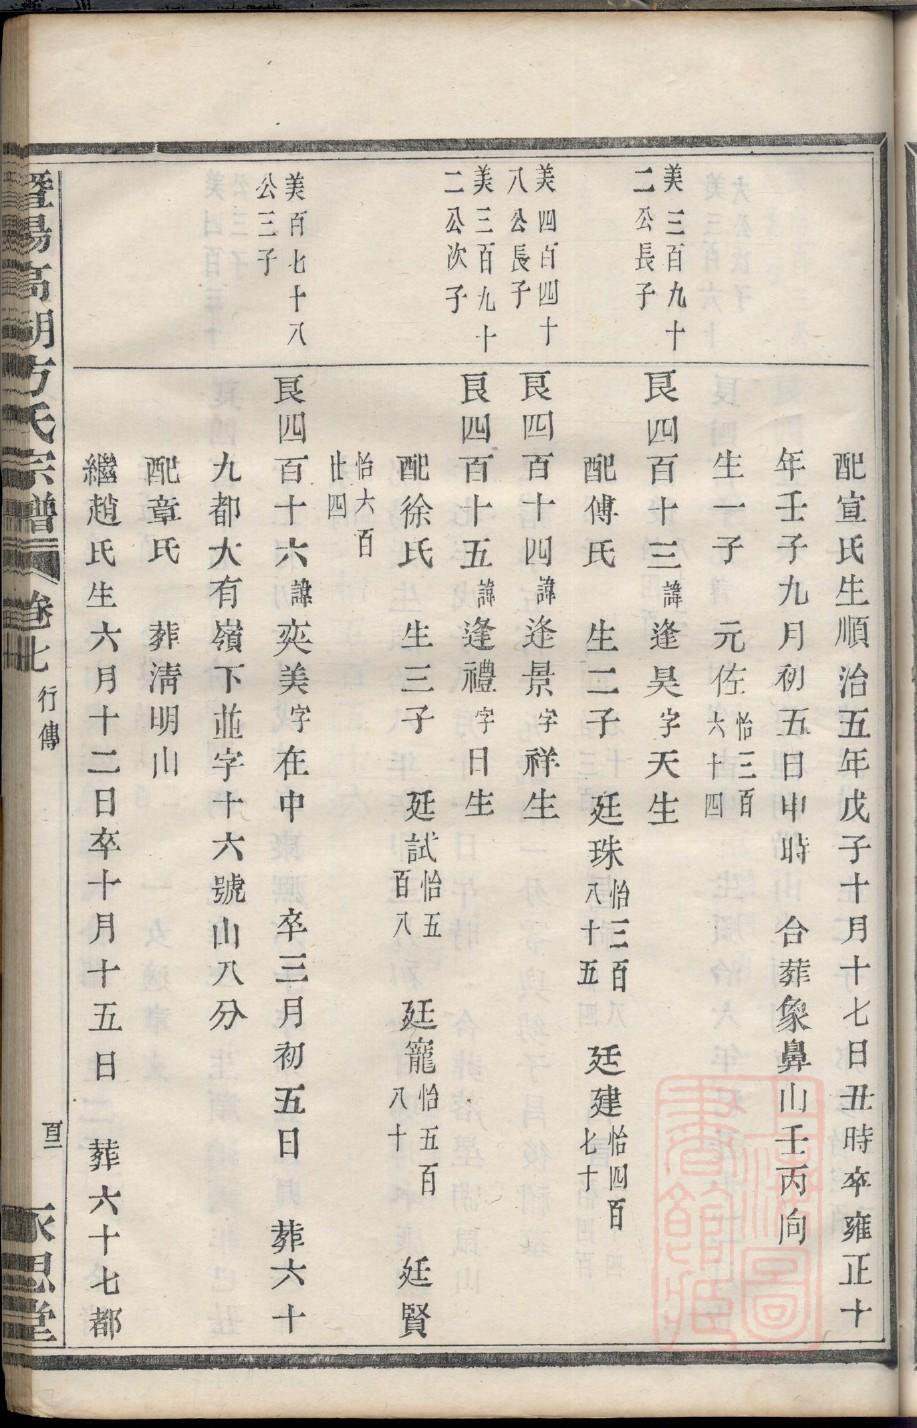 配宣氏生順治五年戊子十月十七日丑時卒雍正十
年壬子九月初五日申時　合葬象鼻山壬丙向
生一子　元佐怡三百六十四
美三百九十二公長子
艮四百十三諱逢昊字天生
配傅氏　生二子　廷珠怡三百八十五　廷建怡四百七十
美四百四十八公長子
艮四百十四諱逢景字祥生
美三百九十二公次子
艮四百十五諱逢禮字日生
配徐氏　生三子　廷試怡五百八　廷寵怡五百八十　廷賢
怡六百廿四
美百七十八公三子
艮四百十六諱奕美字在中　卒三月初五日　葬六十
九都大有嶺下並字十六號山八分
配章氏　葬清明山
繼趙氏生六月十二日卒十月十五日　葬六十七都
暨陽高湖方氏宗譜　卷七　行傳　永思堂